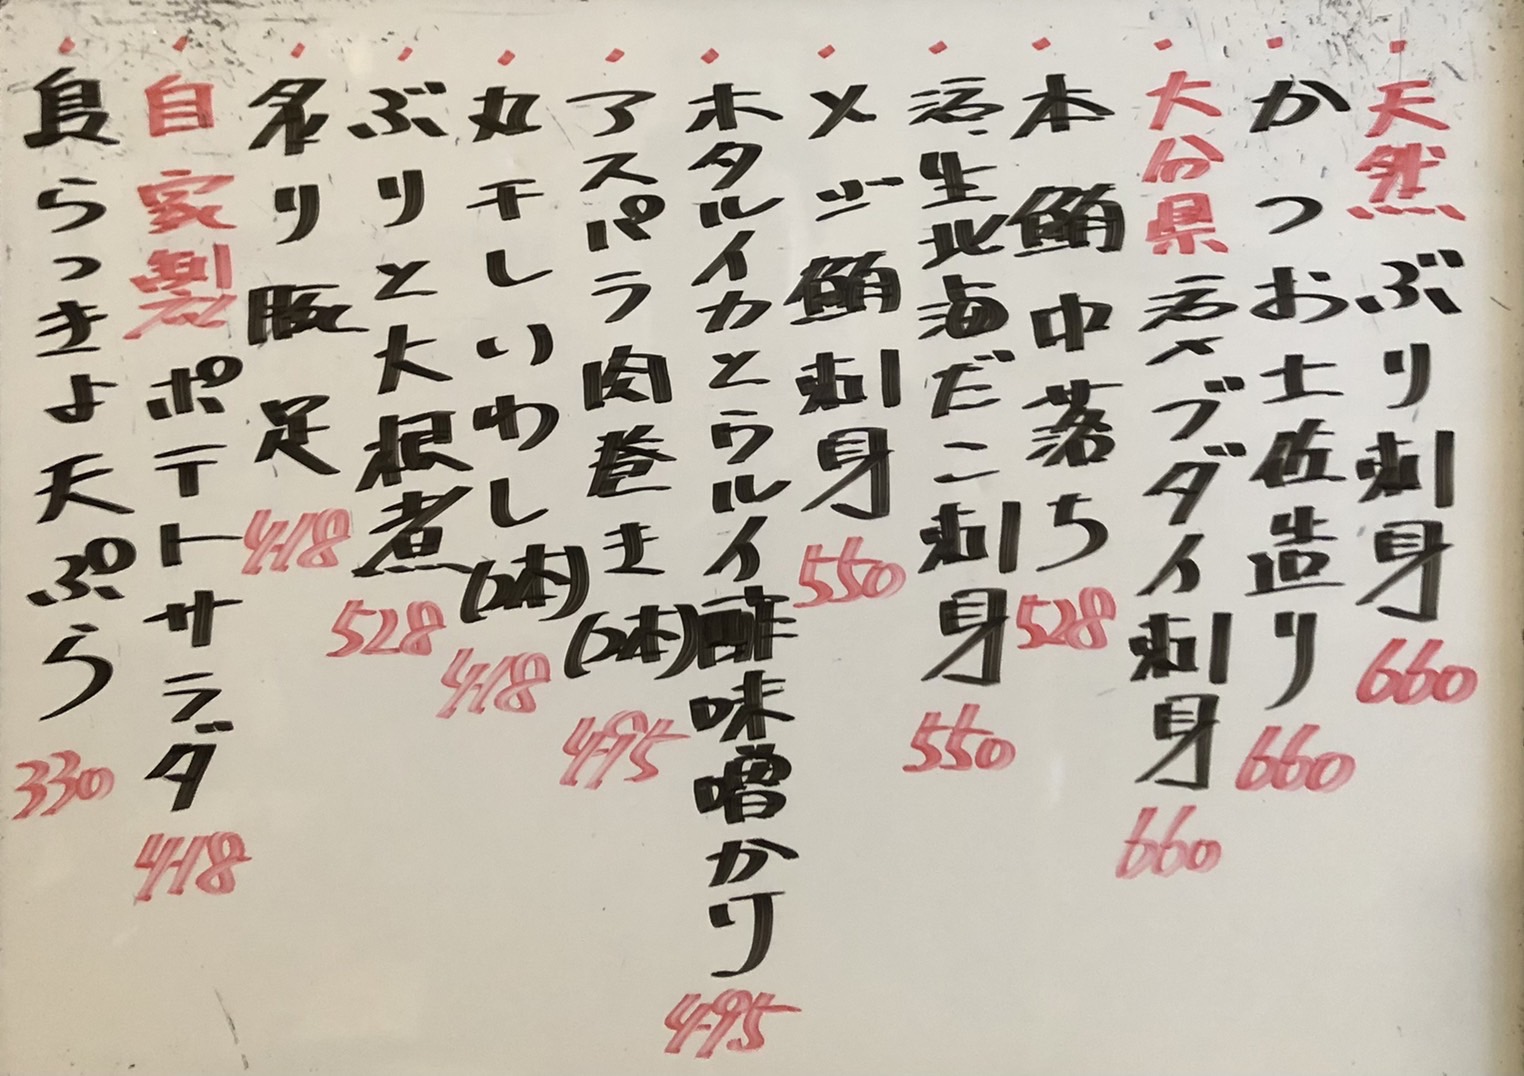 ・天然ぶり刺身 660
・かつお土佐造り 660
・大分県活〆ブダイ刺身 660
・本鮪中落ち 528
・活生北海だこ刺身 550
・メジ鮪刺身 550
・ホタルイカとウルイ酢味噌かけ 495
・アスパラ肉巻き(2本) 495
・丸干しいわし(2本) 418
・ぶりと大根煮 528
・炙り豚足 418
・自家製ポテトサラダ 418
・島らっきょ天ぷら 330